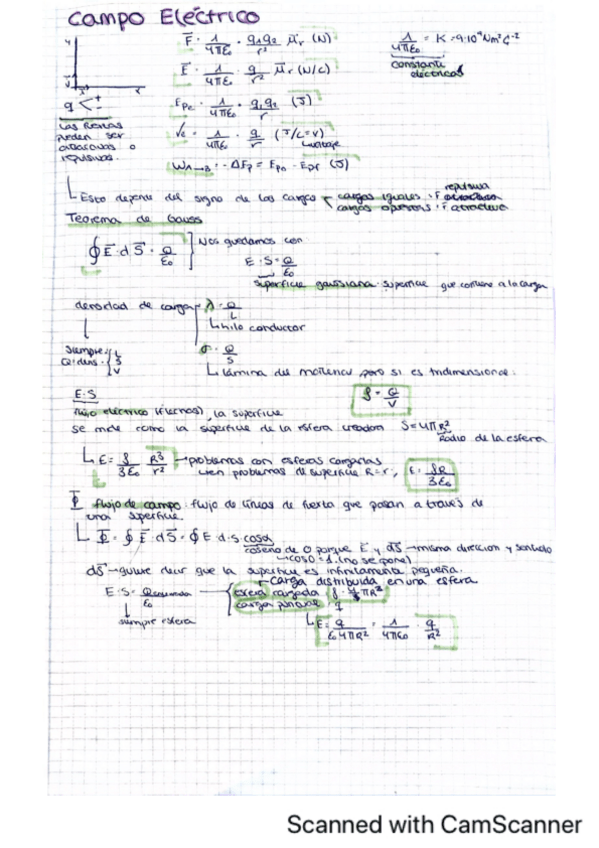 Campo Eléctrico
F⃗ = 1/4πε₀ · q₁q₂/r² μ⃗r (N)
1/4πε₀ = K = 9·10⁹ Nm²C⁻²
constante eléctrica
E⃗ = 1/4πε₀ · q/r² μ⃗r (N/C)
q < + -
Epe = 1/4πε₀ · q₁q₂/r (J)
Las fuerzas
pueden ser
atractivas o
repulsivas.
Ve = 1/4πε₀ · q/r (J/C = V)
Voltaje
WA→B = -ΔEp = Ep₀ - Epf (J)
Esto depende del signo de las cargas
cargas iguales: F repulsiva
cargas opuestas: F atractiva
Teorema de Gauss
∮ E⃗·dS⃗ = Q/ε₀
Nos quedamos con
E·S = Q/ε₀
superficie gaussiana: superficie que contiene a la carga
densidad de carga
λ = Q/L
hilo conductor
Siempre:
Q/dens. L S V
σ = Q/S
lámina
pero si es tridimensional:
E·S
ρ = Q/V
flujo eléctrico (fuerzas), la superficie
se mide como la superficie de la esfera creadora S = 4πR²
Radio de la esfera
E = ρ/3ε₀ R³/r² → problemas con esferas cargadas
en problemas de superficie R=r, E = ρR/3ε₀
Φ flujo de campo: flujo de líneas de fuerza que pasan a través de
una superficie.
Φ = ∮ E⃗·dS⃗ = ∮ E·d·S·cosα
coseno de 0 porque E⃗ y dS⃗ → misma dirección y sentido
cos0 = 1 (no se pone)
dS⃗ → quiere decir que la superficie es infinitamente pequeña.
Carga distribuida en una esfera
E·S = Q/ε₀
esfera cargada ρ · 4/3 πR³
carga puntual q
siempre esfera
E = q/ε₀4πR² = 1/4πε₀ · q/R²
Scanned with CamScanner